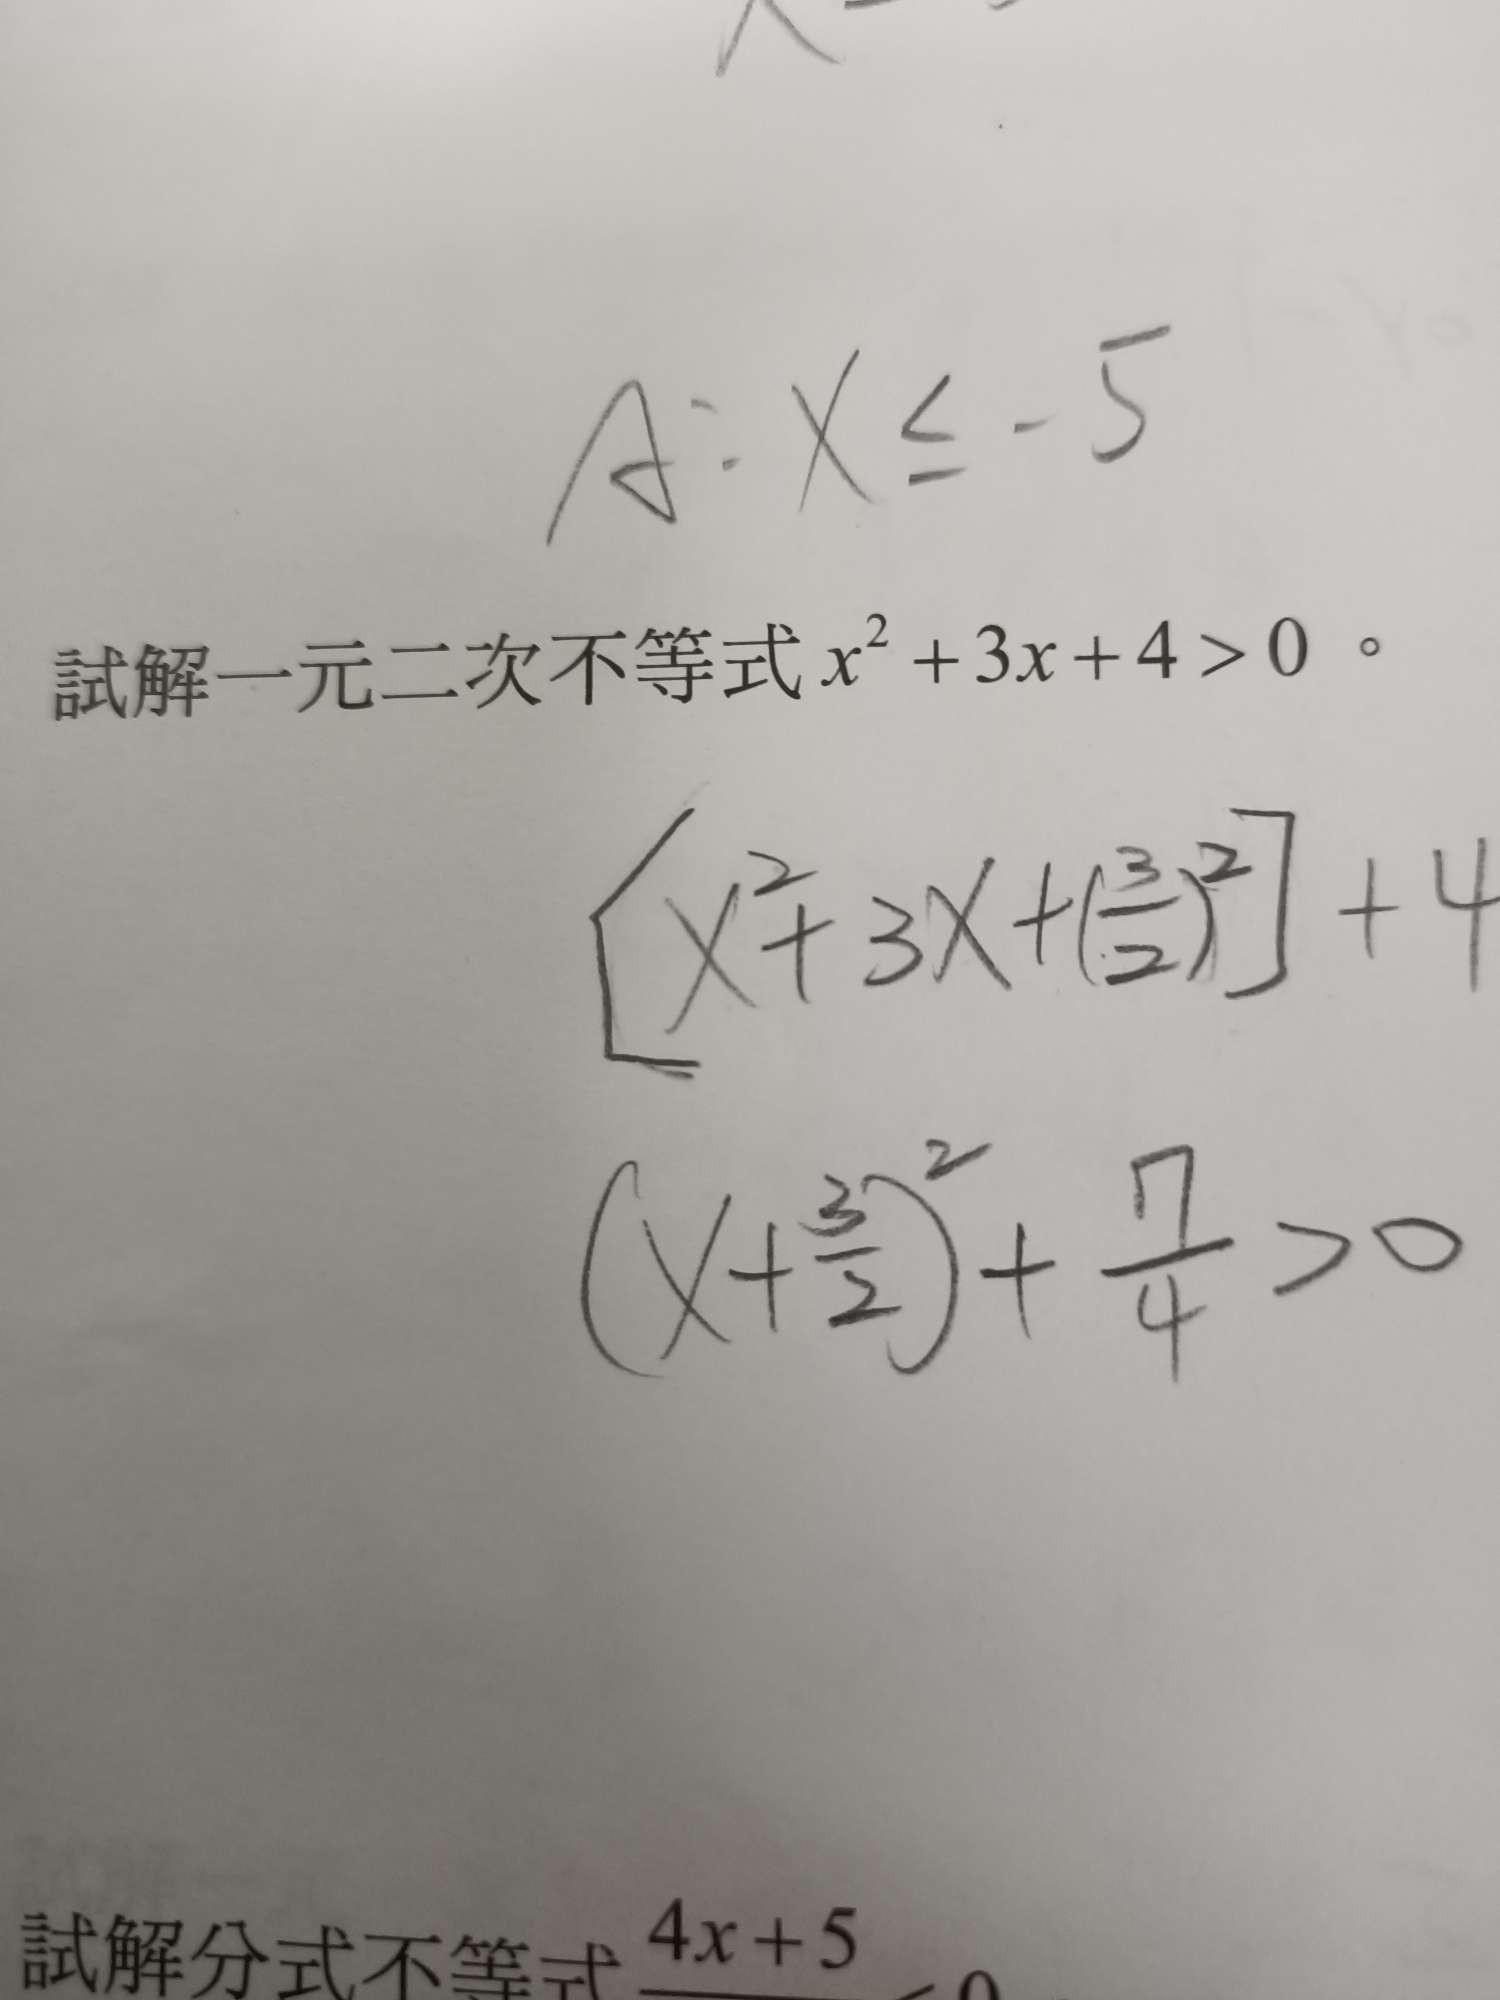 A: x ≤ -5
試解一元二次不等式 x² + 3x + 4 > 0 。
[x² + 3x + (3/2)²] + 4
(x + 3/2)² + 7/4 > 0
試解分式不等式 4x + 5